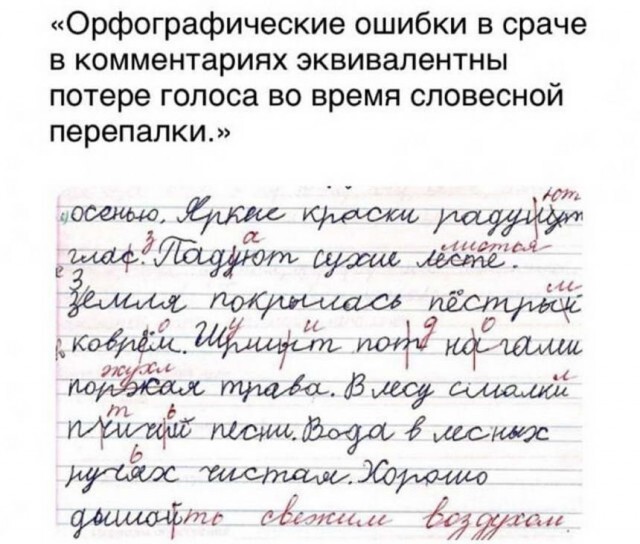 «Орфографические ошибки в сраче
в комментариях эквивалентны
потере голоса во время словесной
перепалки.»
ют
осенью. Яркие краски
з а листья
глас. Падуют сухие лесте.
З м
земля покрылась пёстрый
о у и д о
коврём. пот нагами
жухл л
трава. В лесу смалки
т ь
песни. Вода в лесных
ь
ручях чистая. Хорошо
свежим воздухом